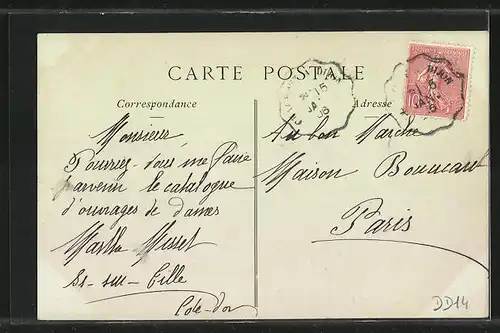 CARTE POSTALE
Correspondance
Adresse
15
JA
06
Monsieur
Pourriez-vous me faire
parvenir le catalogue
d'ouvrages de dames
Martha
Is-sur-Tille
Côte-d'or
Au bon Marché
Maison Boucicaut
Paris
DD14